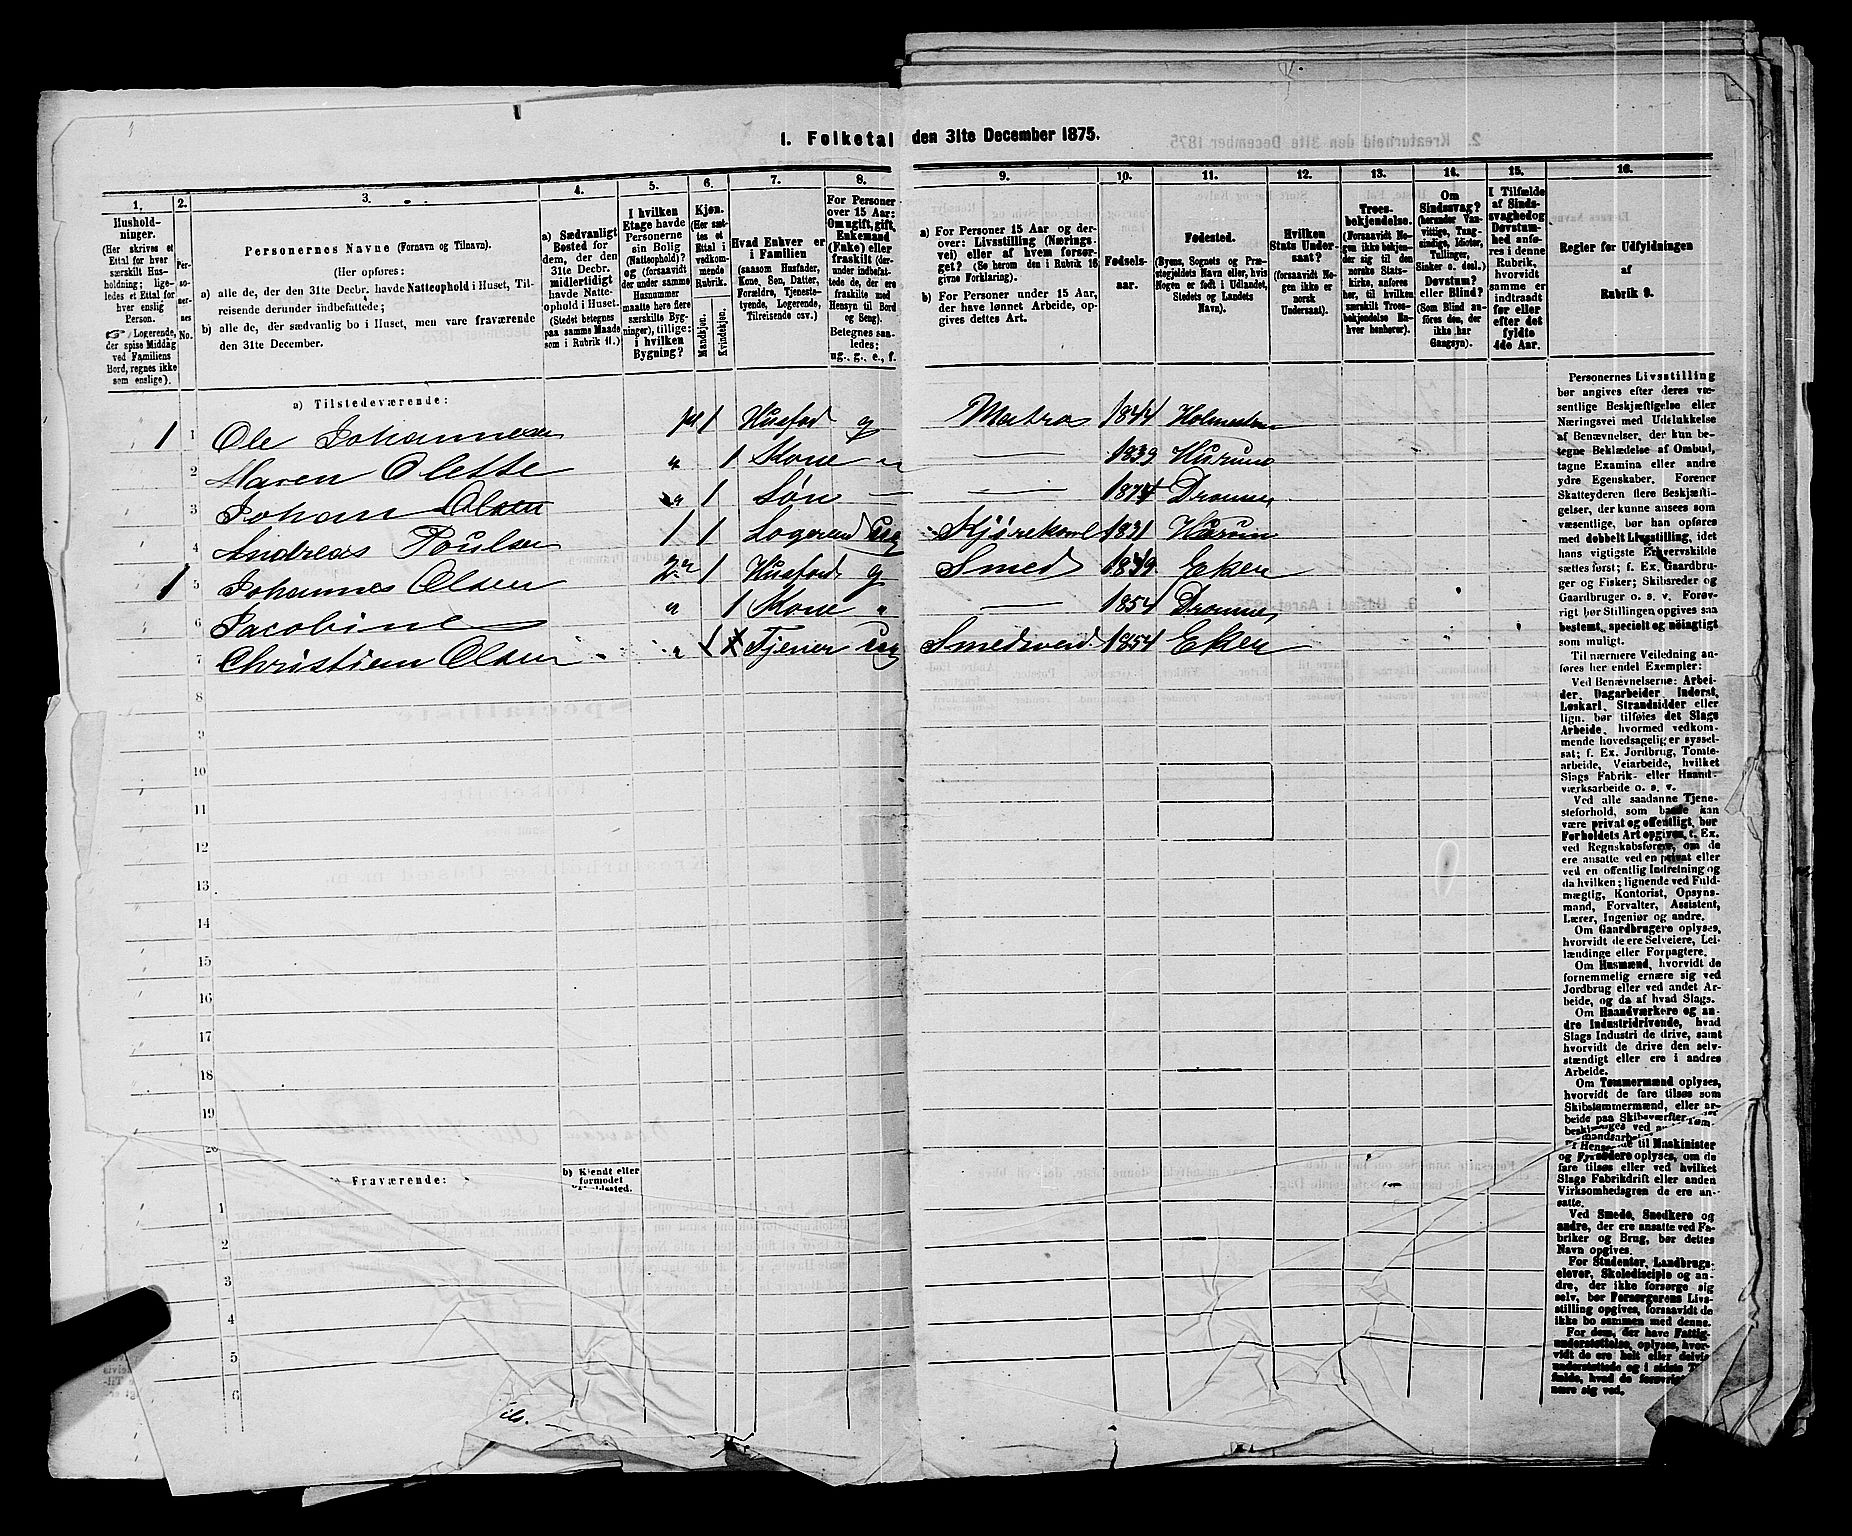 1. Folketal den 31te December 1875.
1. 2. 3. 4. 5. 6. 7. 8. 9. 10. 11. 12. 13. 14. 15. 16.
Hushold-
ninger.
(Her skrives et
Ettal for hver
særskilt Hus-
holdning; lige-
ledes et Ettal for
hver enslig
Person.
☞ Logerende,
der spise Middag
ved Familiens
Bord, regnes ikke
som enslige).
Per-
so-
ner-
nes
No.
Personernes Navne (Fornavn og Tilnavn).
(Her opføres:
a) alle de, der den 31te Decbr. havde Natteophold i Huset, Til-
reisende derunder indbefattede;
b) alle de, der sædvanlig bo i Huset, men vare fraværende
den 31te December.
a) Sædvanligt
Bosted for
dem, der den
31te Decbr.
midlertidigt
havde Natte-
ophold i Huset.
(Stedet betegnes
paa samme Maade
som i Rubrik 11.)
I hvilken
Etage havde
Personerne
sin Bolig
(Natteophold)?
og (forsaavidt
der under samme
Husnummer
maatte høre flere
særskilte Byg-
ninger), tillige:
i hvilken
Bygning?
Kjøn.
(Her sæt-
tes et
Ettal i
vedkom-
mende
Rubrik.
Mandkjøn.
Kvindekjøn.
Hvad Enhver er
i Familien
(saasom Husfader,
Kone, Søn, Datter,
Forældre, Tjeneste-
tyende, Logerende,
Tilreisende osv.)
For Personer
over 15 Aar:
Om ugift, gift,
Enkemand
(Enke) eller
fraskilt (der-
under indbefat-
tede de, der ere
fraskilte med
Hensyn til Bord
og Seng).
Betegnes saa-
ledes:
ug., g., e., f.
a) For Personer 15 Aar og der-
over: Livsstilling (Nærings-
vei) eller af hvem forsør-
get? (Se herom den i Rubrik 16
givne Forklaring).
b) For Personer under 15 Aar,
der have lønnet Arbeide, op-
gives dettes Art.
Fødsels-
aar.
Fødested.
(Byens, Sognets og Præ-
stegjeldets Navn eller, hvis
Nogen er født i Udlandet,
Stedets og Landets
Navn).
Hvilken
Stats Under-
saat?
(forsaavidt No-
gen ikke er
norsk
Undersaat).
Troes-
bekjendelse.
(Forsaavidt No-
gen ikke bekjen-
der sig til den
norske Stats-
kirke, anføres
her, til hvilken
særskilt Troes-
bekjendelse En-
hver henhører).
Om
Sindssvag?
(herunder Van-
vittige, Tung-
sindige, Idioter,
Tullinger,
Sinker o. desl.)
Døvstum?
eller Blind?
(Som Blind an-
føres den, der
ikke har
Gangsyn).
I Tilfælde
af Sinds-
svaghed og
Døvstum-
hed anfø-
res i denne
Rubrik,
hvorvidt
samme er
indtraadt
før eller
efter det
fyldte
4de Aar.
Regler for Udfyldningen
af
Rubrik 9.
a) Tilstedeværende:
1 1 Ole Johannesen 1 Husfad g Matros 1844 Holmestra
2 Maren Olette " 1 Kone " — 1839 Hurum
3 Johan Olsen " 1 Søn — — 1874 Dramm,
4 Andreas Poulsen 1 1 Logerend ug Kjørekarl 1831 Hurum
1 5 Johannes Olsen 2 1 Husfad g Smed 1849 Eker
6 Jacobine " 1 Kone " — 1854 Dramm,
7 Christian Olsen " 1 Tjener ug Smedsvend 1854 Eker
8
9
10
11
12
13
14
15
16
17
18
19
20
Fraværende:
b) Kjendt eller
formodet
1
2
3
4
5
6
Personernes Livsstilling
bør angives efter deres væ-
sentlige Beskjæftigelse eller
Næringsvei med Udelukkelse
af Benævnelser, der kun be-
tegne Beklædelse af Ombud,
tagne Examina eller andre
ydre Egenskaber. Forener
Skatteyderen flere Beskjæfti-
gelser, der kunne ansees som
væsentlige, bør han opføres
med dobbelt Livsstilling, idet
hans vigtigste Erhvervskilde
sættes først; f. Ex. Gaardbru-
ger og Fisker; Skibsreder og
Gaardbruger o. s. v. Forøv-
rigt bør Stillingen opgives saa
bestemt, specielt og nøiagtigt
som muligt.
Til nærmere Veiledning an-
føres her endel Exempler:
Ved Benævnelserne: Arbei-
der, Dagarbeider, Inderst,
Løskarl, Strandsidder eller
lign. bør tilføies det Slags
Arbeide, hvormed vedkom-
mende hovedsagelig er syssel-
sat; f. Ex. Jordbrug, Tomte-
arbeide, Veiarbeide, hvilket
Slags Fabrik- eller Haand-
værksarbeide o. s. v.
Ved alle saadanne Tjene-
steforhold, som baade kan
være privat og offentligt, bør
Forholdets Art opgives, f. Ex.
ved Regnskabsførere, om de
ere ansatte ved en privat eller
ved en offentlig Indretning og
da hvilken; lignende ved Fuld-
mægtig, Kontorist, Opsyns-
mand, Forvalter, Assistent,
Lærer, Ingeniør og andre.
Om Gaardbrugere oplyses,
hvorvidt de ere Selveiere, Lei-
lændinge eller Forpagtere.
Om Husmænd, hvorvidt de
fornemmelig ernære sig ved
Jordbrug eller ved andet Ar-
beide, og da af hvad Slags.
Om Haandværkere og an-
dre Industridrivende, hvad
Slags Industri de drive, samt
hvorvidt de drive den selv-
stændigt eller ere i andres
Arbeide.
Om Tømmermænd oplyses,
hvorvidt de fare tilsøs som
Skibstømmermænd, eller ar-
beide paa Skibsværfter
beskjæftiges ved
Hensende til Maskinister
og Fyrbødere oplyses, om de
fare tilsøs eller ved hvilket
Slags Fabrikdrift eller anden
Virksomhedsgren de ere an-
satte.
Ved Smede, Snedkere og
andre, der ere ansatte ved Fa-
briker og Brug, bør dettes
Navn opgives.
For Studenter, Landbrugs-
elever, Skoledisciple og an-
dre, der ikke forsørge sig
selv, bør Forsørgerens Livs-
stilling opgives, forsaavidt de
ikke bo sammen med denne.
For dem, der have Fattig-
understøttelse, oplyses, hvor-
vidt de ere helt eller delvis
understøttede og i sidste
fælde, hvad de forøvrigt
nære sig ved.